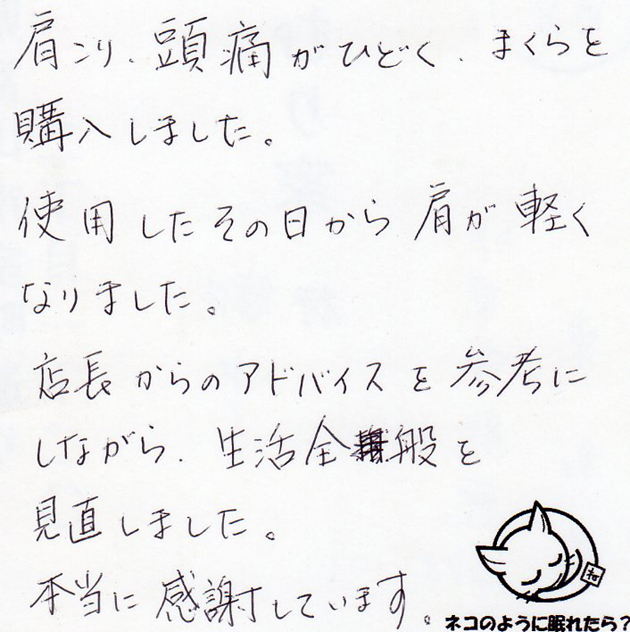 肩こり、頭痛がひどく、まくらを
購入しました。
使用したその日から肩が軽く
なりました。
店長からのアドバイスを参考に
しながら、生活全般を
見直しました。
本当に感謝しています。
ネコのように眠れたら?